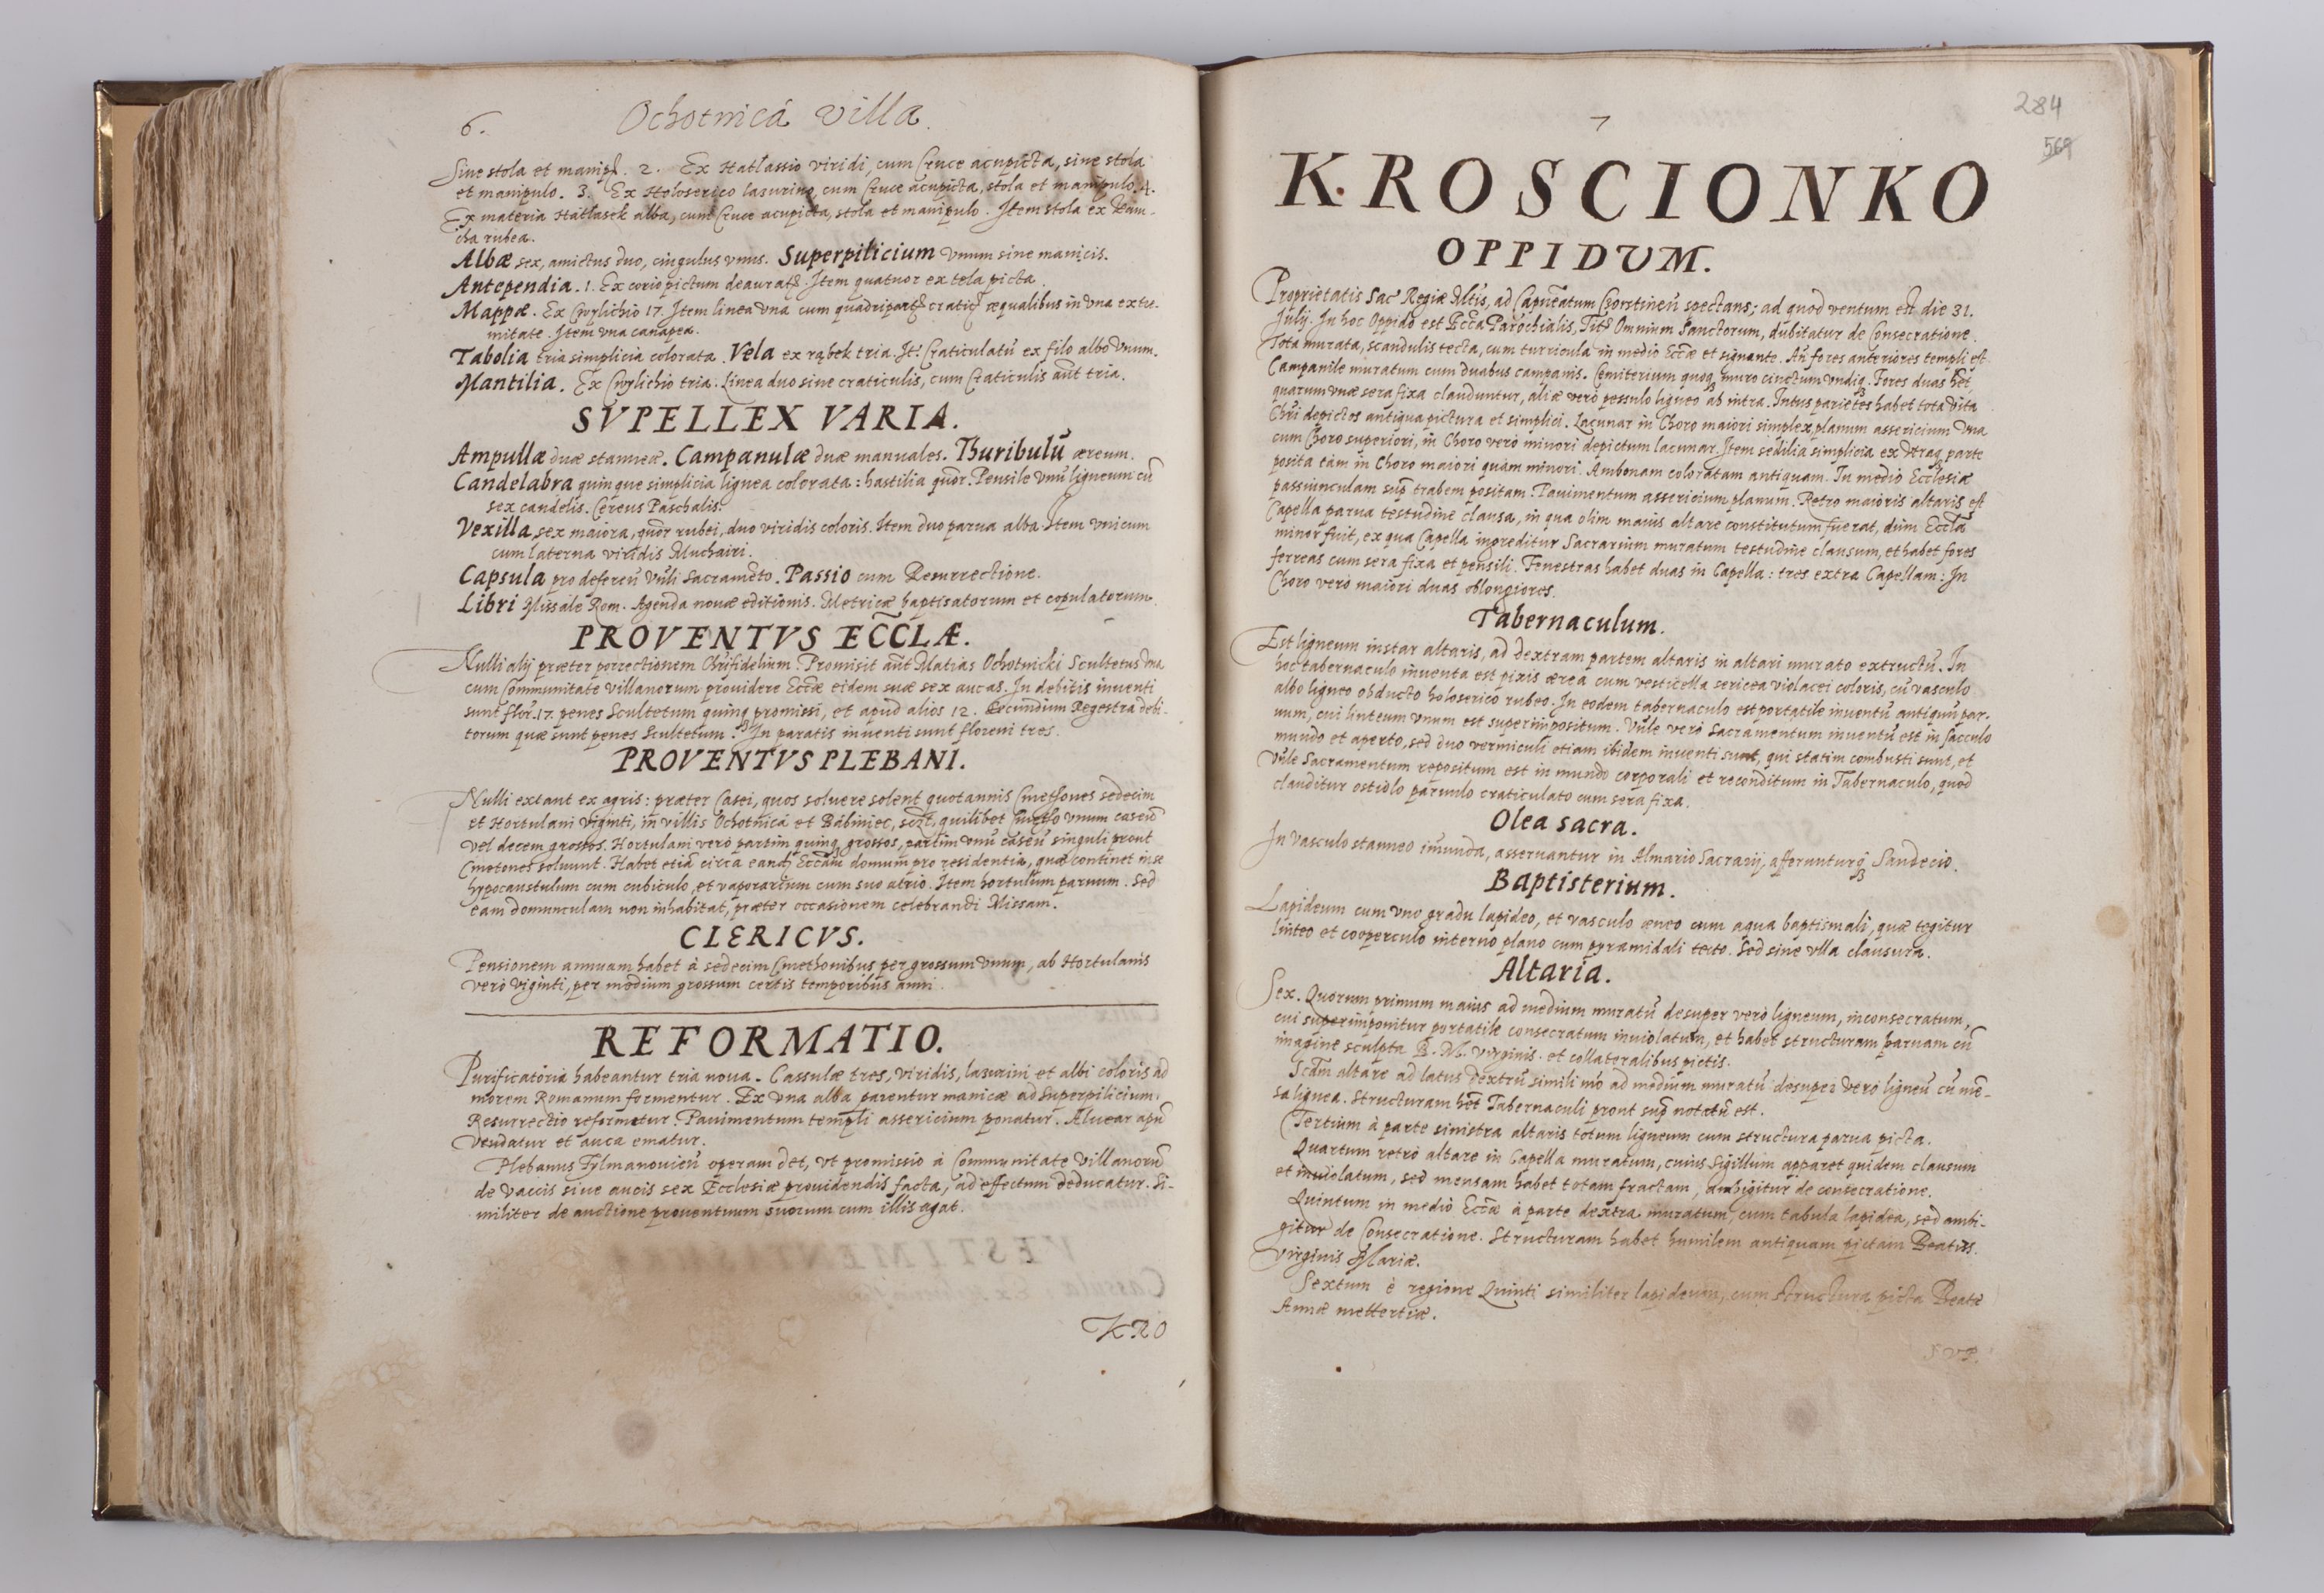 6. Ochotnicá villa.
Sine stola et manipł. 2. Ex Hatłassio viridi, cum Cruce acupicta, sine stola
et manipulo. 3. Ex Holoserico lazurino, cum Cruce acupicta, stola et manipulo. 4.
Ex materia Hatłasek alba, cum Cruce acupicta, stola et manipulo. Item stola ex Kam-
cha rubea.
Albæ sex, amictus duo, cingulus vnus. Superpilicium vnum sine manicis.
Antependia. 1. Ex corio pictum deaurat. Item quatuor ex tela picta.
Mappæ. Ex Cwylichio 17. Item linea vna cum quadripart cratic æqualibus in vna extre-
mitate. Item vna canapea.
Tabolia tria simplicia colorata. Vela ex rąbek tria. It: Craticulatū ex filo albo vnum.
Mantilia. Ex Cwylichio tria. Linea duo sine craticulis, cum Craticulis aūt tria.
SVPELLEX VARIA.
Ampullæ duæ stanneæ. Campanulæ duæ manuales. Thuribulū æreum.
Candelabra quinque simplicia lignea colorata: hastilia quōr. Pensile vnū ligneum cū
sex candelis. Cereus Paschalis.
Vexilla sex maiora, quōr rubei, duo viridis coloris. Item duo parua alba. Item vnicum
cum laterna viridis Muchairi.
Capsula pro deferen̄ Vn̄li Sacramēto. Passio cum Resurrectione.
Libri Missale Rom. Agenda nouæ editionis. Metricæ baptisatorum et copulatorum.
PROVENTVS ECC̄LÆ.
Nulli alij præter porrectionem Chr̄ifidelium. Promisit aūt Matias Ochotnicki Scultetus vna
cum Communitate villanorum prouidere Ecc̄æ eidem suæ sex aucas. In debitis inuenti
sunt flor. 17. penes Scultetum quinq promissi, et apud alios 12. Secundum Regestra debi-
torum quæ sunt penes Scultetum. In paratis inuenti sunt floreni tres.
PROVENTVS PLEBANI.
Nulli extant ex agris: præter Casei, quos soluere solent quotannis Cmethones sedecim
et Hortulani viginti, in villis Ochotnicá et Bábiniec, sczt, quilibet Cmetho vnum caseū
vel decem grossos. Hortulani verò partim quinq grossos, partim vnū caseū singuli prout
Cmetones soluunt. Habet etiā circa eand Ecc̄am domum pro residentia, quæ continet in se
hypocaustulum cum cubiculo, et vaporarium cum suo atrio. Item hortulum paruum. Sed
eam domunculam non inhabitat, præter occasionem celebrandi Missam.
CLERICVS.
Pensionem annuam habet à sedecim Cmethonibus per grossum vnum, ab Hortulanis
verò viginti, per medium grossum certis temporibus anni.
REFORMATIO.
Purificatoria habeantur tria noua. Cassulæ tres, viridis, lazurini et albi coloris ad
morem Romanum formentur. Ex vna alba parentur manicæ ad Superpilicium.
Resurrectio reformetur. Pauimentum templi assericium ponatur. Aluear apū
vendatur et auca ematur.
Plebanus Tylmanouien̄ operam det, vt promissio à Communitate villanorū
de vaccis siue aucis sex Ecclesiæ prouidendis facta, ad effectum deducatur. Si-
militer de auctione prouentuum suorum cum illis agat.
KRO
7
284
569
KROSCIONKO
OPPIDVM.
Proprietatis Sac Regiæ Mtis, ad Capneatum Chorstineū spectans; ad quod ventum est die 31.
Julij. In hoc Oppido est Ecc̄a Parochialis, Tit Omnium Sanctorum, dubitatur de Consecratione.
Tota murata, scandulis tecta, cum turricula in medio Ecc̄æ et signante. An̄ fores anteriores templi est
Campanile muratum cum duabus campanis. Cemiterium quoq muro cinctum vndiq. Fores duas hēt
quarum vnæ sera fixa clauduntur, aliæ verò pessulo ligneo ab intra. Intus parietes habet tota vita
Chr̄i depictos antiqua pictura et simplici. Lacunar in Choro maiori simplex planum assericium vna
cum Choro superiori, in Choro verò minori depictum lacunar. Item sedilia simplicia ex vtraq parte
posita tàm in Choro maiori quàm minori. Ambonam coloratam antiquam. In medio Ecclesiæ
passiunculam sup̄ trabem positam. Pauimentum assericium planum. Retro maioris altaris est
Capella parua testudine clausa, in qua olim maius altare constitutum fuerat, dum Eccl̄a
minor fuit, ex qua Capella ingreditur Sacrarium muratum testudine clausum, et habet fores
ferreas cum sera fixa et pensili. Fenestras habet duas in Capella: tres extra Capellam: In
Choro verò maiori duas oblongiores.
Tabernaculum.
Est ligneum instar altaris, ad dextram partem altaris in altari murato extructū. In
hoc tabernaculo inuenta est pixis ærea cum vesticella sericea violacei coloris, cū vasculo
albo ligneo obducto holoserico rubeo. In eodem tabernaculo est portatile inuentū antiquū par-
uum, cui linteum vnum est superimpositum. Vn̄le verò Sacramentum inuentū est in sacculo
mundo et aperto, sed duo vermiculi etiam ibidem inuenti sunt, qui statim combusti sunt, et
Vn̄le Sacramentum repositum est in mundo corporali et reconditum in Tabernaculo, quod
clauditur ostiolo paruulo craticulato cum sera fixa.
Olea sacra.
In vasculo stanneo im̄unda, asseruantur in Almario Sacrarij, afferunturq Sandecio.
Baptisterium.
Lapideum cum vno gradu lapideo, et vasculo æneo cum aqua baptismali, quæ tegitur
linteo et cooperculo interno plano cum pyramidali tecto. Sed sine vlla clausura.
Altaria.
Sex. Quorum primum maius ad medium muratū desuper verò ligneum, inconsecratum,
cui superimponitur portatile consecratum inuiolatum, et habet structuram paruam cū
imagine sculpta B. M. virginis et collateralibus pictis.
Scdm altare ad latus dextrū simili mō ad medium muratū desuper vero ligneū cū mē-
sa lignea. Structuram hēt Tabernaculi prout sup̄ notatū est.
Tertium à parte sinistra altaris totum ligneum cum structura parua picta.
Quartum retrò altare in Capella muratum, cuius Sigillum apparet quidem clausum
et inuiolatum, sed mensam habet totam fractam, ambigitur de consecratione.
Quintum in medio Ecc̄æ à parte dextra muratum, cum tabula lapidea, sed ambi-
gitur de Consecratione. Structuram habet humilem antiquam pictam Beatiss.
Virginis Mariæ.
Sextum è regione Quinti similiter lapideum, cum structura picta Beatæ
Annæ mettertiæ.
SVP.